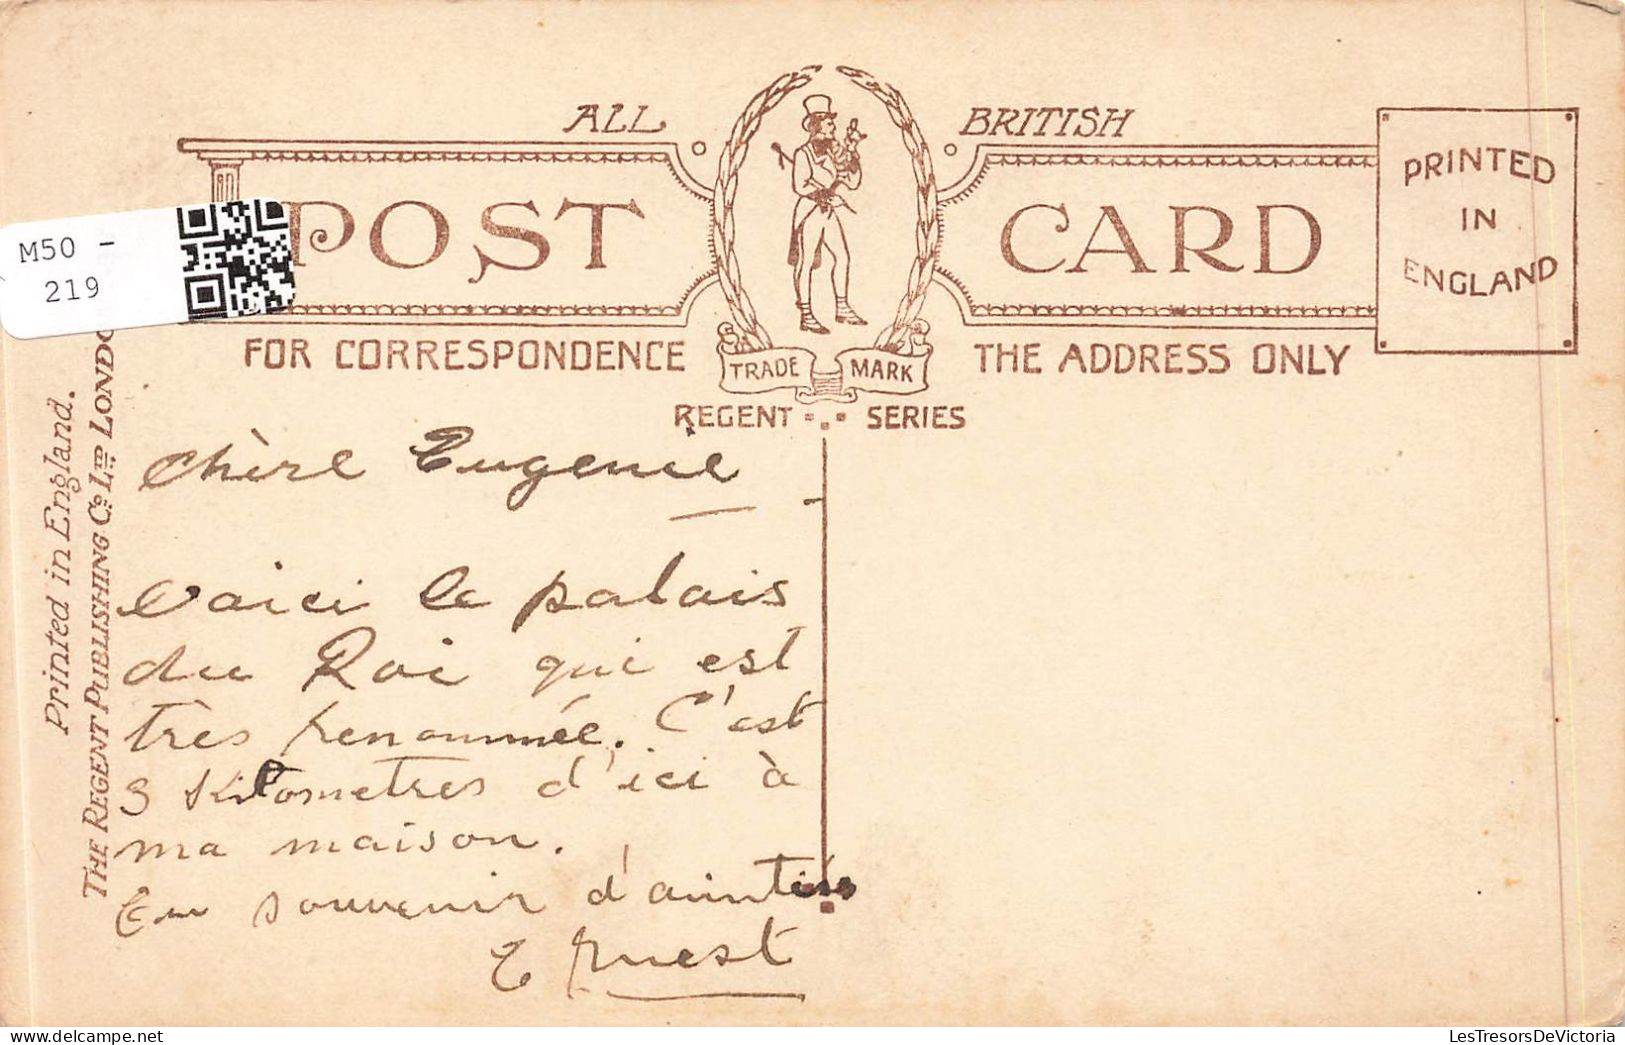 ALL BRITISH
POST CARD
PRINTED
IN
ENGLAND
M50 -
219
FOR CORRESPONDENCE
THE ADDRESS ONLY
TRADE MARK
REGENT SERIES
Printed in England.
THE REGENT PUBLISHING Co LTD LONDO
Chère Eugenie
Voici le palais
du Roi qui est
très renommée. C'est
3 Kilometres d'ici à
ma maison.
En souvenir d'amitiés
Ernest
delcampe.net
LesTresorsDeVictoria